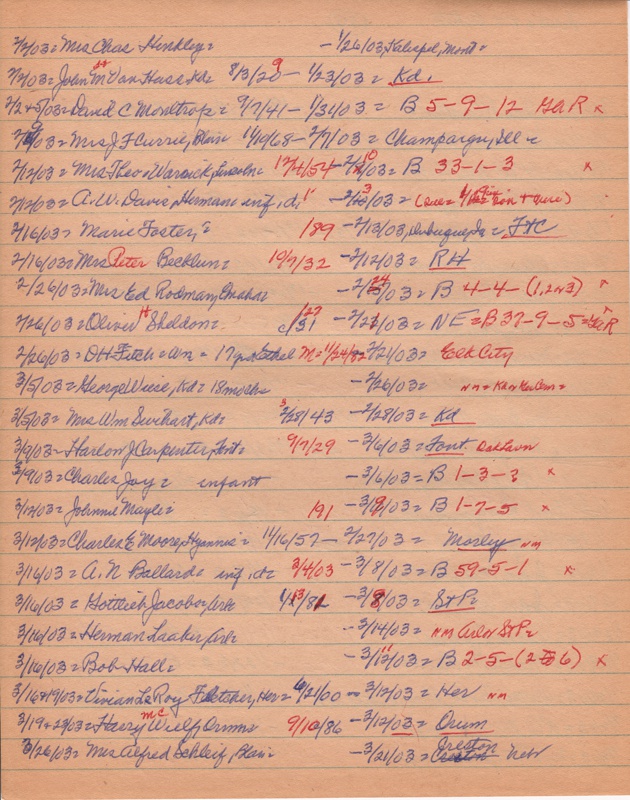 2/2/03 = Mrs Chas Hinkley = - 1/26/03, Kalispel, Mont =
2/2/03 = John H M Van Hass Kd = 8/3/20 9 - 1/23/03 = Kd.
2/2+5/03 = David C Monltrop = 9/7/41 - 1/31/03 = B 5-9-12 GAR x
2/9/03 = Mrs J F Currie, Blair 1/10/68 - 2/7/03 = Champaign, Ill =
2/12/03 = Mrs Theo. Warrick, Lincoln 12/4/54 - 2/10/03 = B 33-1-3 x
2/12/03 = A. W. Davis, Herman = inf. d. - 2/3/03 =
2/16/03 = Marie Foster, = /89 - 2/13/03, Dubuque, Ia = FtC
2/16/03 = Mrs Peter Becklun = 10/7/32 - 2/12/03 = RH
2/26/03 = Mrs Ed Rodman, Omaha = - 2/24/03 = B 4-4-(1,2 or 3) x
2/26/03 = Oliver H Sheldon = c/31 - 2/23/03 = NE = B 37-9-5 = GAR
2/26/03 = DH Fitch = Wn = 17 yrs Ethel M = 11/24/ - 2/21/03 = Elk City
3/5/03 = George Wiese, Kd = 18 mo chs - 2/26/03 = nm = Kd Nw Cem =
3/5/03 = Mrs Wm Swihart, Kd = 3/28/43 - 2/28/03 = Kd
3/9/03 = Harlon J Carpenter, Font = 9/7/29 - 3/6/03 = Font. Oaklawn
3/9/03 = Charles Joy = infant - 3/6/03 = B 1-3-? x
3/12/03 = Johnnie Mayle = /91 - 3/9/03 = B 1-7-5 x
3/12/03 = Charles E Moore, Hyannis = 11/16/57 - 2/27/03 = Mosley nm
3/16/03 = A. N Ballard = inf. d = 3/4/03 - 3/8/03 = B 59-5-1 x
3/16/03 = Gottlieb Jacober, Arl = 1/13/82 - 3/9/03 = StP =
3/16/03 = Herman Laaker, Arl = - 3/14/03 = nm Arl or StP =
3/16/03 = Bob Hall = - 3/11/03 = B 2-5-(2 to 6) x
3/16+19/03 = Vivian La Roy Fletcher, Her = 6/21/00 - 3/12/03 = Her nm
3/19+23/03 = Harry Mc Wielf, Orum = 9/10/86 - 3/12/03 = Orum
3/26/03 = Mrs Alfred Schleif, Blair = - 3/21/03 = Creston Nebr